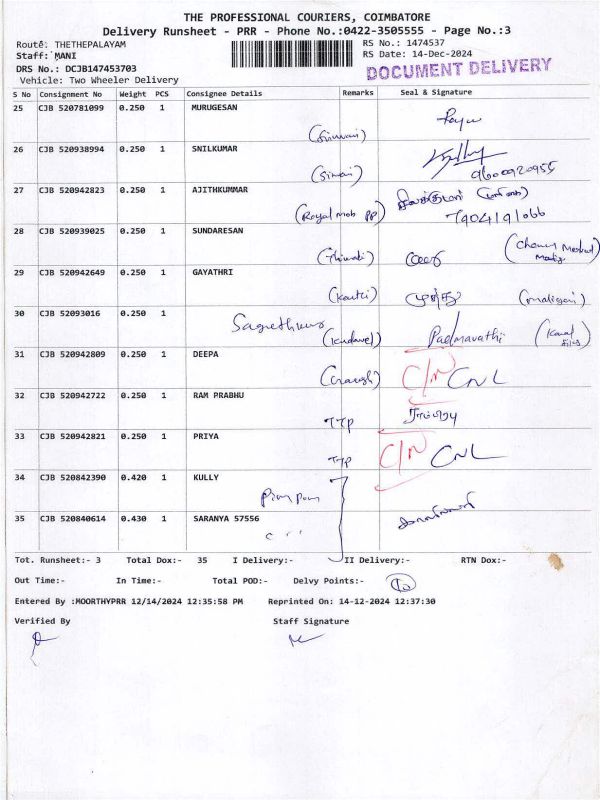 THE PROFESSIONAL COURIERS, COIMBATORE
Delivery Runsheet - PRR - Phone No.:0422-3505555 - Page No.:3
Route: THETHEPALAYAM RS No.: 1474537
Staff: MANI RS Date: 14-Dec-2024
DRS No.: DCJB147453703 DOCUMENT DELIVERY
Vehicle: Two Wheeler Delivery
S No Consignment No Weight PCS Consignee Details Remarks Seal & Signature
25 CJB 520781099 0.250 1 MURUGESAN
26 CJB 520938994 0.250 1 SNILKUMAR
9600920955
27 CJB 520942823 0.250 1 AJITHKUMMAR
(Royal mob PP)
28 CJB 520939025 0.250 1 SUNDARESAN
29 CJB 520942649 0.250 1 GAYATHRI
30 CJB 52093016 0.250 1
Padmavathi
31 CJB 520942809 0.250 1 DEEPA
C/N CNL
32 CJB 520942722 0.250 1 RAM PRABHU
TTP ராம்பிரபு
33 CJB 520942821 0.250 1 PRIYA
TTP C/N CNL
34 CJB 520842390 0.420 1 KULLY
35 CJB 520840614 0.430 1 SARANYA 57556
Tot. Runsheet:- 3 Total Dox:- 35 I Delivery:- II Delivery:- RTN Dox:-
Out Time:- In Time:- Total POD:- Delvy Points:-
Entered By :MOORTHYPRR 12/14/2024 12:35:58 PM Reprinted On: 14-12-2024 12:37:30
Verified By Staff Signature